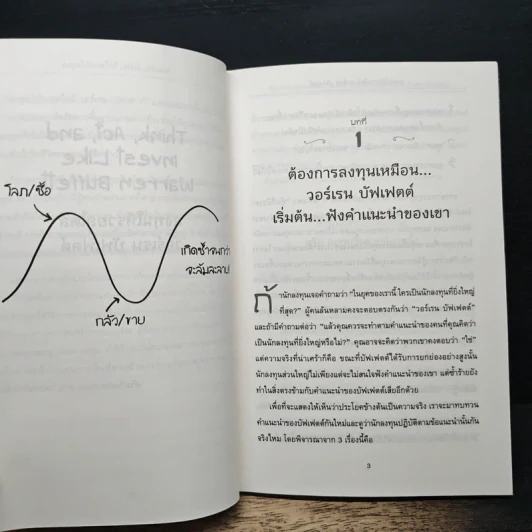 โลภ/ซื้อ
กลัว/ขาย
เกิดซ้ำจนกว่า
จะล้มละลาย!
บทที่
1
ต้องการลงทุนเหมือน...
วอร์เรน บัฟเฟตต์
เริ่มต้น...ฟังคำแนะนำของเขา
ถ้านักลงทุนเจอคำถามว่า "ในยุคของเรานี้ ใครเป็นนักลงทุนที่ยิ่งใหญ่
ที่สุด?" ผู้คนล้นหลามคงจะตอบตรงกันว่า "วอร์เรน บัฟเฟตต์"
และถ้ามีคำถามต่อว่า "แล้วคุณควรจะทำตามคำแนะนำของคนที่คุณคิดว่า
เป็นนักลงทุนที่ยิ่งใหญ่หรือไม่?" คุณอาจจะคิดว่าพวกเขาคงตอบว่า "ใช่"
แต่ความจริงที่น่าเศร้าก็คือ ขณะที่บัฟเฟตต์ได้รับการยกย่องอย่างสูงนั้น
นักลงทุนส่วนใหญ่ไม่เพียงแต่จะไม่สนใจฟังคำแนะนำของเขา แต่ซ้ำร้ายยัง
ทำในสิ่งตรงข้ามกับคำแนะนำของบัฟเฟตต์เสียอีกด้วย
เพื่อที่จะแสดงให้เห็นว่าประโยคข้างต้นเป็นความจริง เราจะมาทบทวน
คำแนะนำของบัฟเฟตต์กันใหม่และดูว่านักลงทุนปฏิบัติตามข้อแนะนำนั้นกัน
จริงไหม โดยพิจารณาจาก 3 เรื่องนี้คือ
3